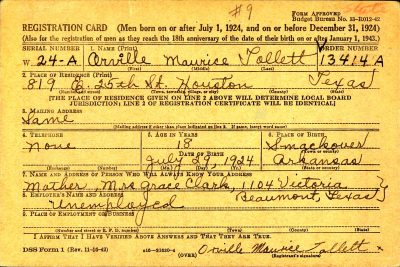 #9
FORM APPROVED
Budget Bureau No. 33-R012-42
REGISTRATION CARD (Men born on or after July 1, 1924, and on or before December 31, 1924)
(Also for the registration of men as they reach the 18th anniversary of the date of their birth on or after January 1, 1943.)
SERIAL NUMBER 1. NAME (Print) ORDER NUMBER
W. 24-A Orville Maurice Tollett 13414A
(First) (Middle) (Last)
2. PLACE OF RESIDENCE (Print)
819 E. 25th St. Houston Texas
(Number and street) (Town, township, village, or city) (County) (State)
[THE PLACE OF RESIDENCE GIVEN ON LINE 2 ABOVE WILL DETERMINE LOCAL BOARD
JURISDICTION; LINE 2 OF REGISTRATION CERTIFICATE WILL BE IDENTICAL]
3. MAILING ADDRESS
Same
(Mailing address if other than place indicated on line 2. If same, insert word same)
4. TELEPHONE 5. AGE IN YEARS 6. PLACE OF BIRTH
None 18 Smackover
DATE OF BIRTH (Town or county)
July 29, 1924 Arkansas
(Exchange) (Number) (Mo.) (Day) (Yr.) (State or country)
7. NAME AND ADDRESS OF PERSON WHO WILL ALWAYS KNOW YOUR ADDRESS
Mother, Mrs Grace Clark, 1104 Victoria
8. EMPLOYER'S NAME AND ADDRESS
Unemployed Beaumont, Texas
9. PLACE OF EMPLOYMENT OR BUSINESS
(Number and street or R. F. D. number) (Town) (County) (State)
I AFFIRM THAT I HAVE VERIFIED ABOVE ANSWERS AND THAT THEY ARE TRUE.
DSS Form 1 (Rev. 11-16-42) (OVER) Orville Maurice Tollett x
(Registrant's signature)